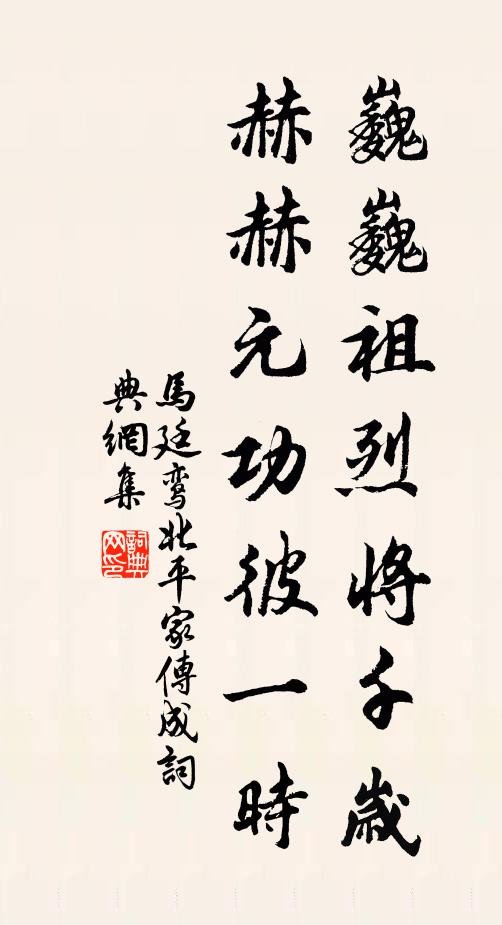 巍巍祖烈將千歲
赫赫元功彼一時
馬廷鸾北平家傳成詞
典網集
詞典网印